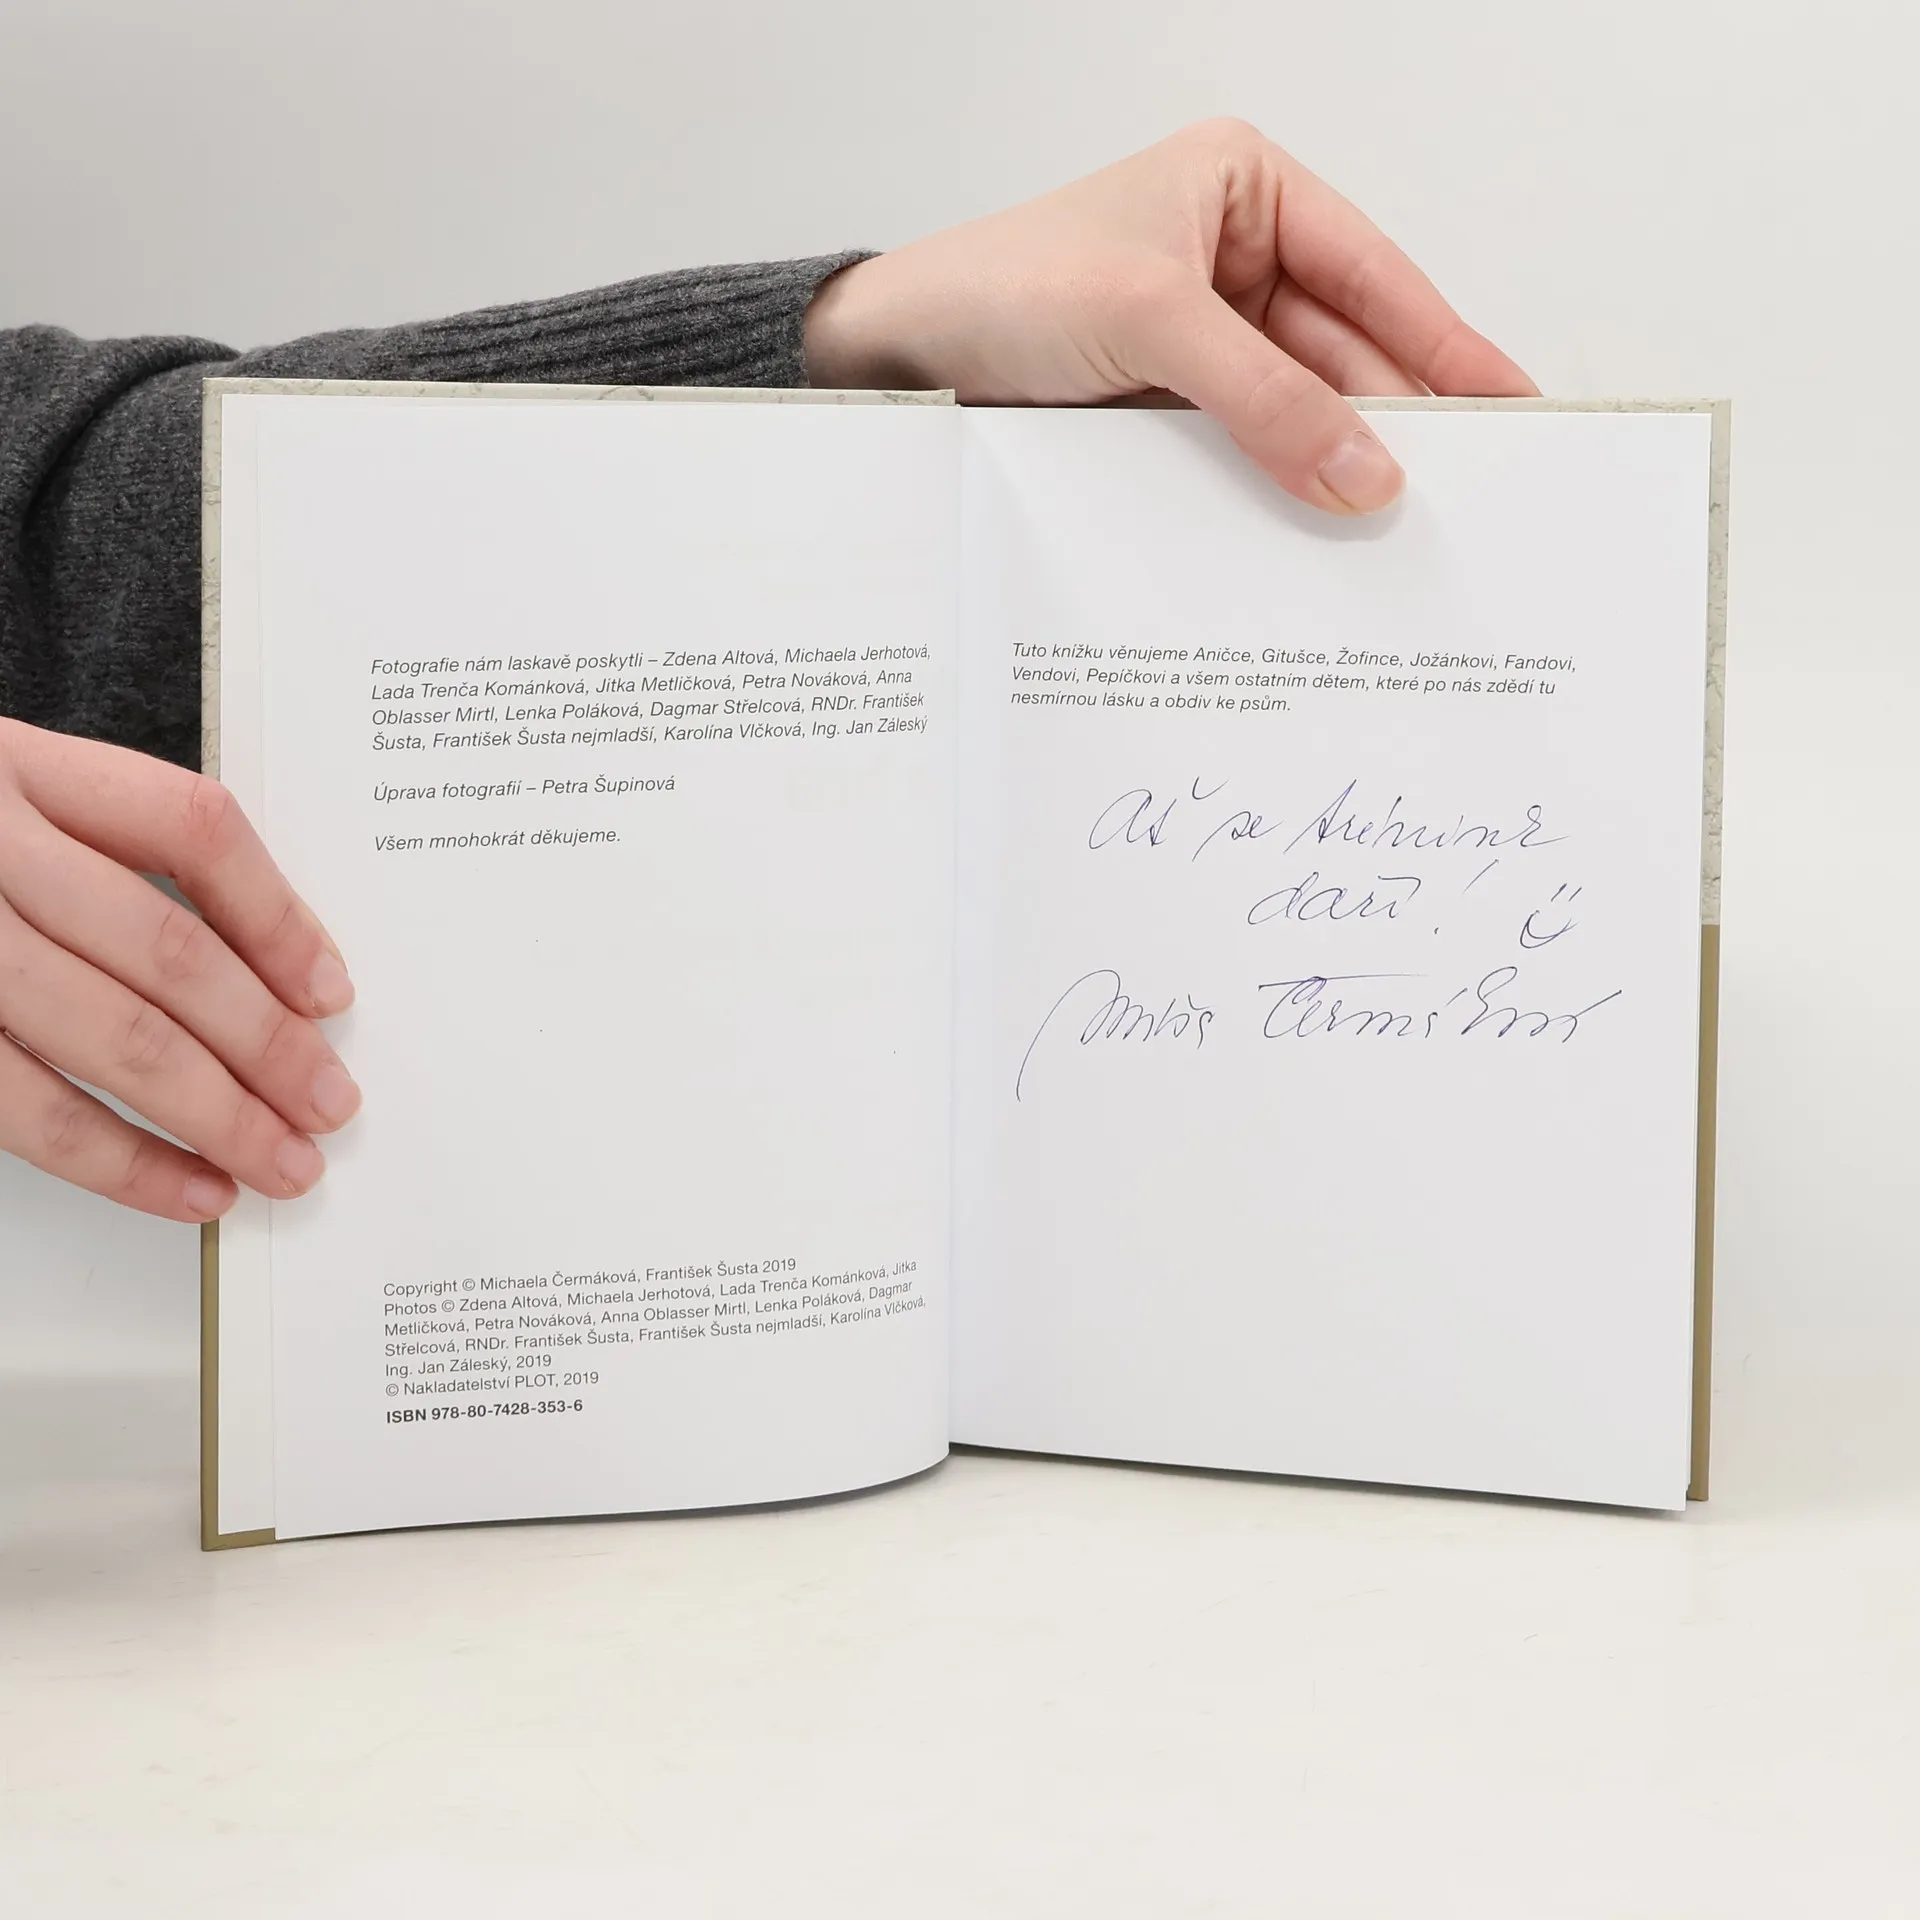 Fotografie nám laskavě poskytli – Zdena Altová, Michaela Jerhotová,
Lada Trenča Kománková, Jitka Metličková, Petra Nováková, Anna
Oblasser Mirtl, Lenka Poláková, Dagmar Střelcová, RNDr. František
Šusta, František Šusta nejmladší, Karolína Vlčková, Ing. Jan Záleský
Úprava fotografií – Petra Šupinová
Všem mnohokrát děkujeme.
Copyright © Michaela Čermáková, František Šusta 2019
Photos © Zdena Altová, Michaela Jerhotová, Lada Trenča Kománková, Jitka
Metličková, Petra Nováková, Anna Oblasser Mirtl, Lenka Poláková, Dagmar
Střelcová, RNDr. František Šusta, František Šusta nejmladší, Karolína Vlčková,
Ing. Jan Záleský, 2019
© Nakladatelství PLOT, 2019
ISBN 978-80-7428-353-6
Tuto knížku věnujeme Aničce, Gitušce, Žofince, Jožánkovi, Fandovi,
Vendovi, Pepíčkovi a všem ostatním dětem, které po nás zdědí tu
nesmírnou lásku a obdiv ke psům.
Ať se trénink
daří!
Čermáková